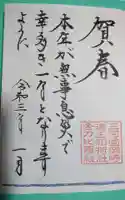 賀春
本年が無事息災で
幸多き一年となります
ように
令和三年 一月
金刀比羅宮